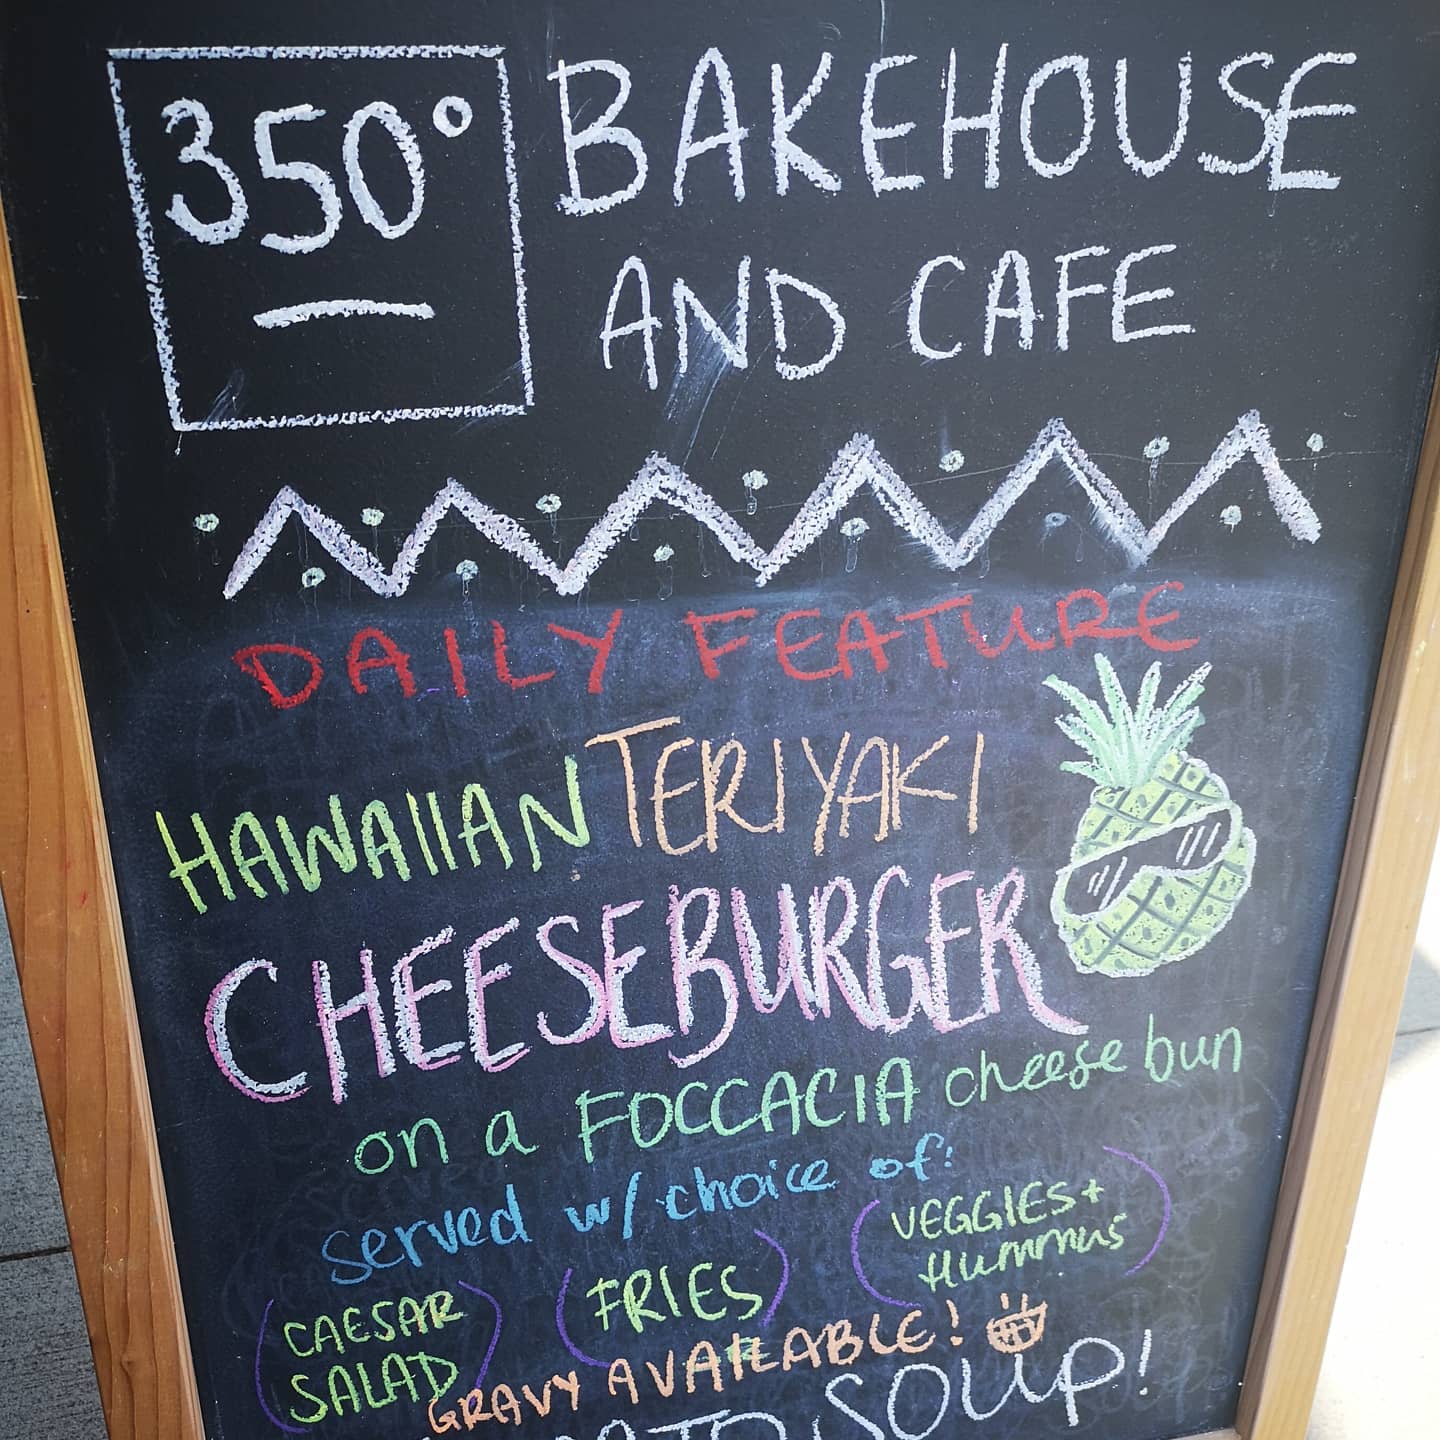 350° BAKEHOUSE
AND CAFE
DAILY FEATURE
HAWAIIAN TERIYAKI
CHEESEBURGER
on a FOCCACIA cheese bun
served w/ choice of:
CAESAR
SALAD
FRIES
VEGGIES +
Hummus
GRAVY AVAILABLE!
SOUP!